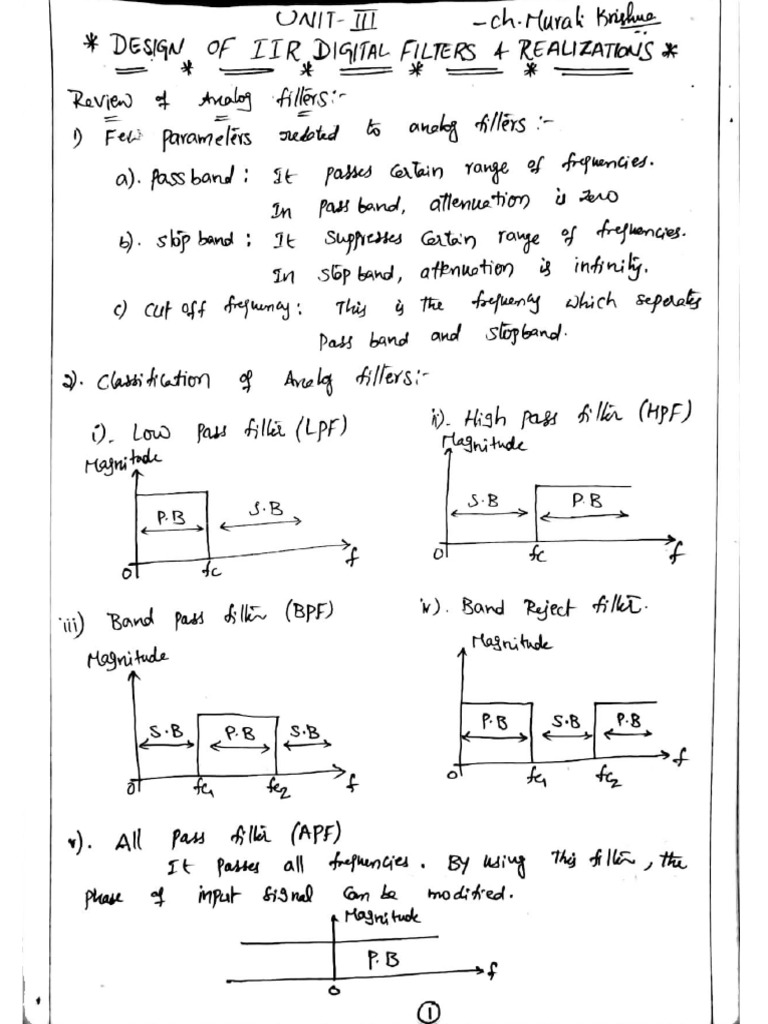 UNIT-III
-ch. Murali Krishna
* DESIGN OF IIR DIGITAL FILTERS & REALIZATIONS *
* * * *
Review of Analog filters:-
1) Few parameters related to analog filters :-
a). pass band : It passes certain range of frequencies.
In pass band, attenuation is zero
b). stop band : It suppresses certain range of frequencies.
In stop band, attenuation is infinity.
c) cut off frequency : This is the frequency which seperates
pass band and stopband.
2). Classification of Analog filters:-
i). Low pass filter (LPF)
Magnitude
P.B
S.B
0
fc
f
ii). High pass filter (HPF)
Magnitude
S.B
P.B
0
fc
f
iii) Band pass filter (BPF)
Magnitude
S.B
P.B
S.B
0
fc1
fc2
f
iv). Band Reject filter.
Magnitude
P.B
S.B
P.B
0
fc1
fc2
f
v). All pass filter (APF)
It passes all frequencies. By using this filter, the
phase of input signal can be modified.
Magnitude
P.B
f
0
1